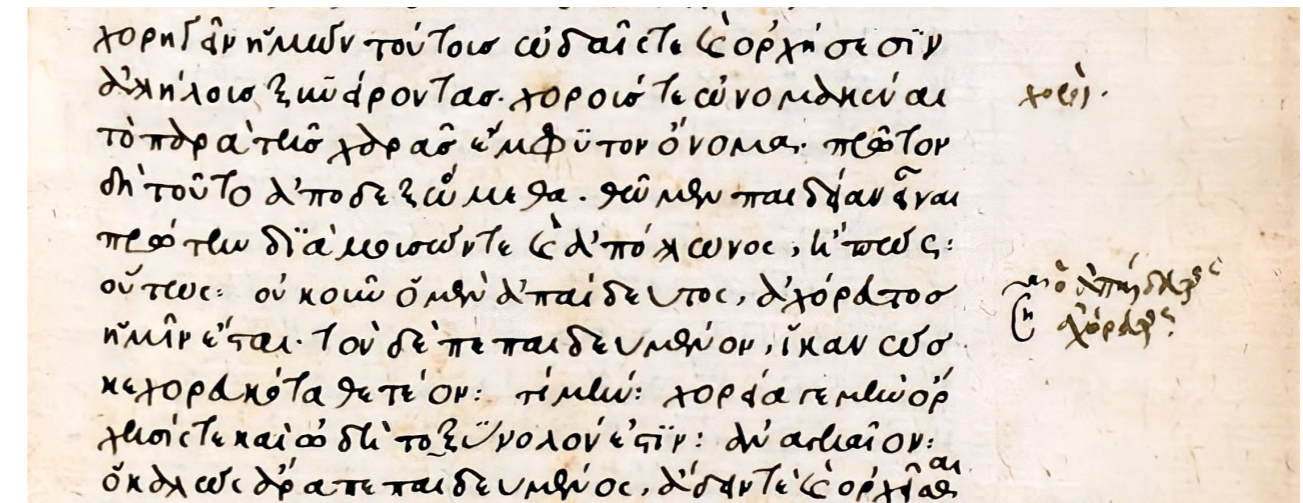 χορηγεῖν ἡμῶν τούτοισ ὠδαῖς τε καὶ ὀρχήσεσϊν
ἀλλήλοισ ξυνείροντασ· χοροὺσ τε ὠνομακέναι
τὸ παρὰ τῆσ χαρᾶσ ἔμφϋτον ὄνομα· πρῶτον
δὴ τοῦτο ἀποδεξώμεθα· θῶμεν παιδείαν εἶναι
πρώτην δϊὰ μουσῶν τε καὶ ἀπόλλωνος, ἢ πῶς:
οὕτως: οὐκοῦν ὁ μὲν ἀπαίδευτος, ἀχόρευτοσ
ἡμῖν ἔσται· τὸν δὲ πεπαιδευμένον, ἱκανῶσ
κεχορευκότα θετέον: τί μήν: χορεία γε μὴν ὄρ
χησίς τε καὶ ὠδὴ τὸ ξϋνολον ἐστϊν: ἀναγκαῖον:
ὁ καλῶς ἄρα πεπαιδευμένος, ἄδειν τὲ καὶ ὀρχεῖσθαι
χοροί·
ὁ ἀπαίδευτος
ἀχόρευτος